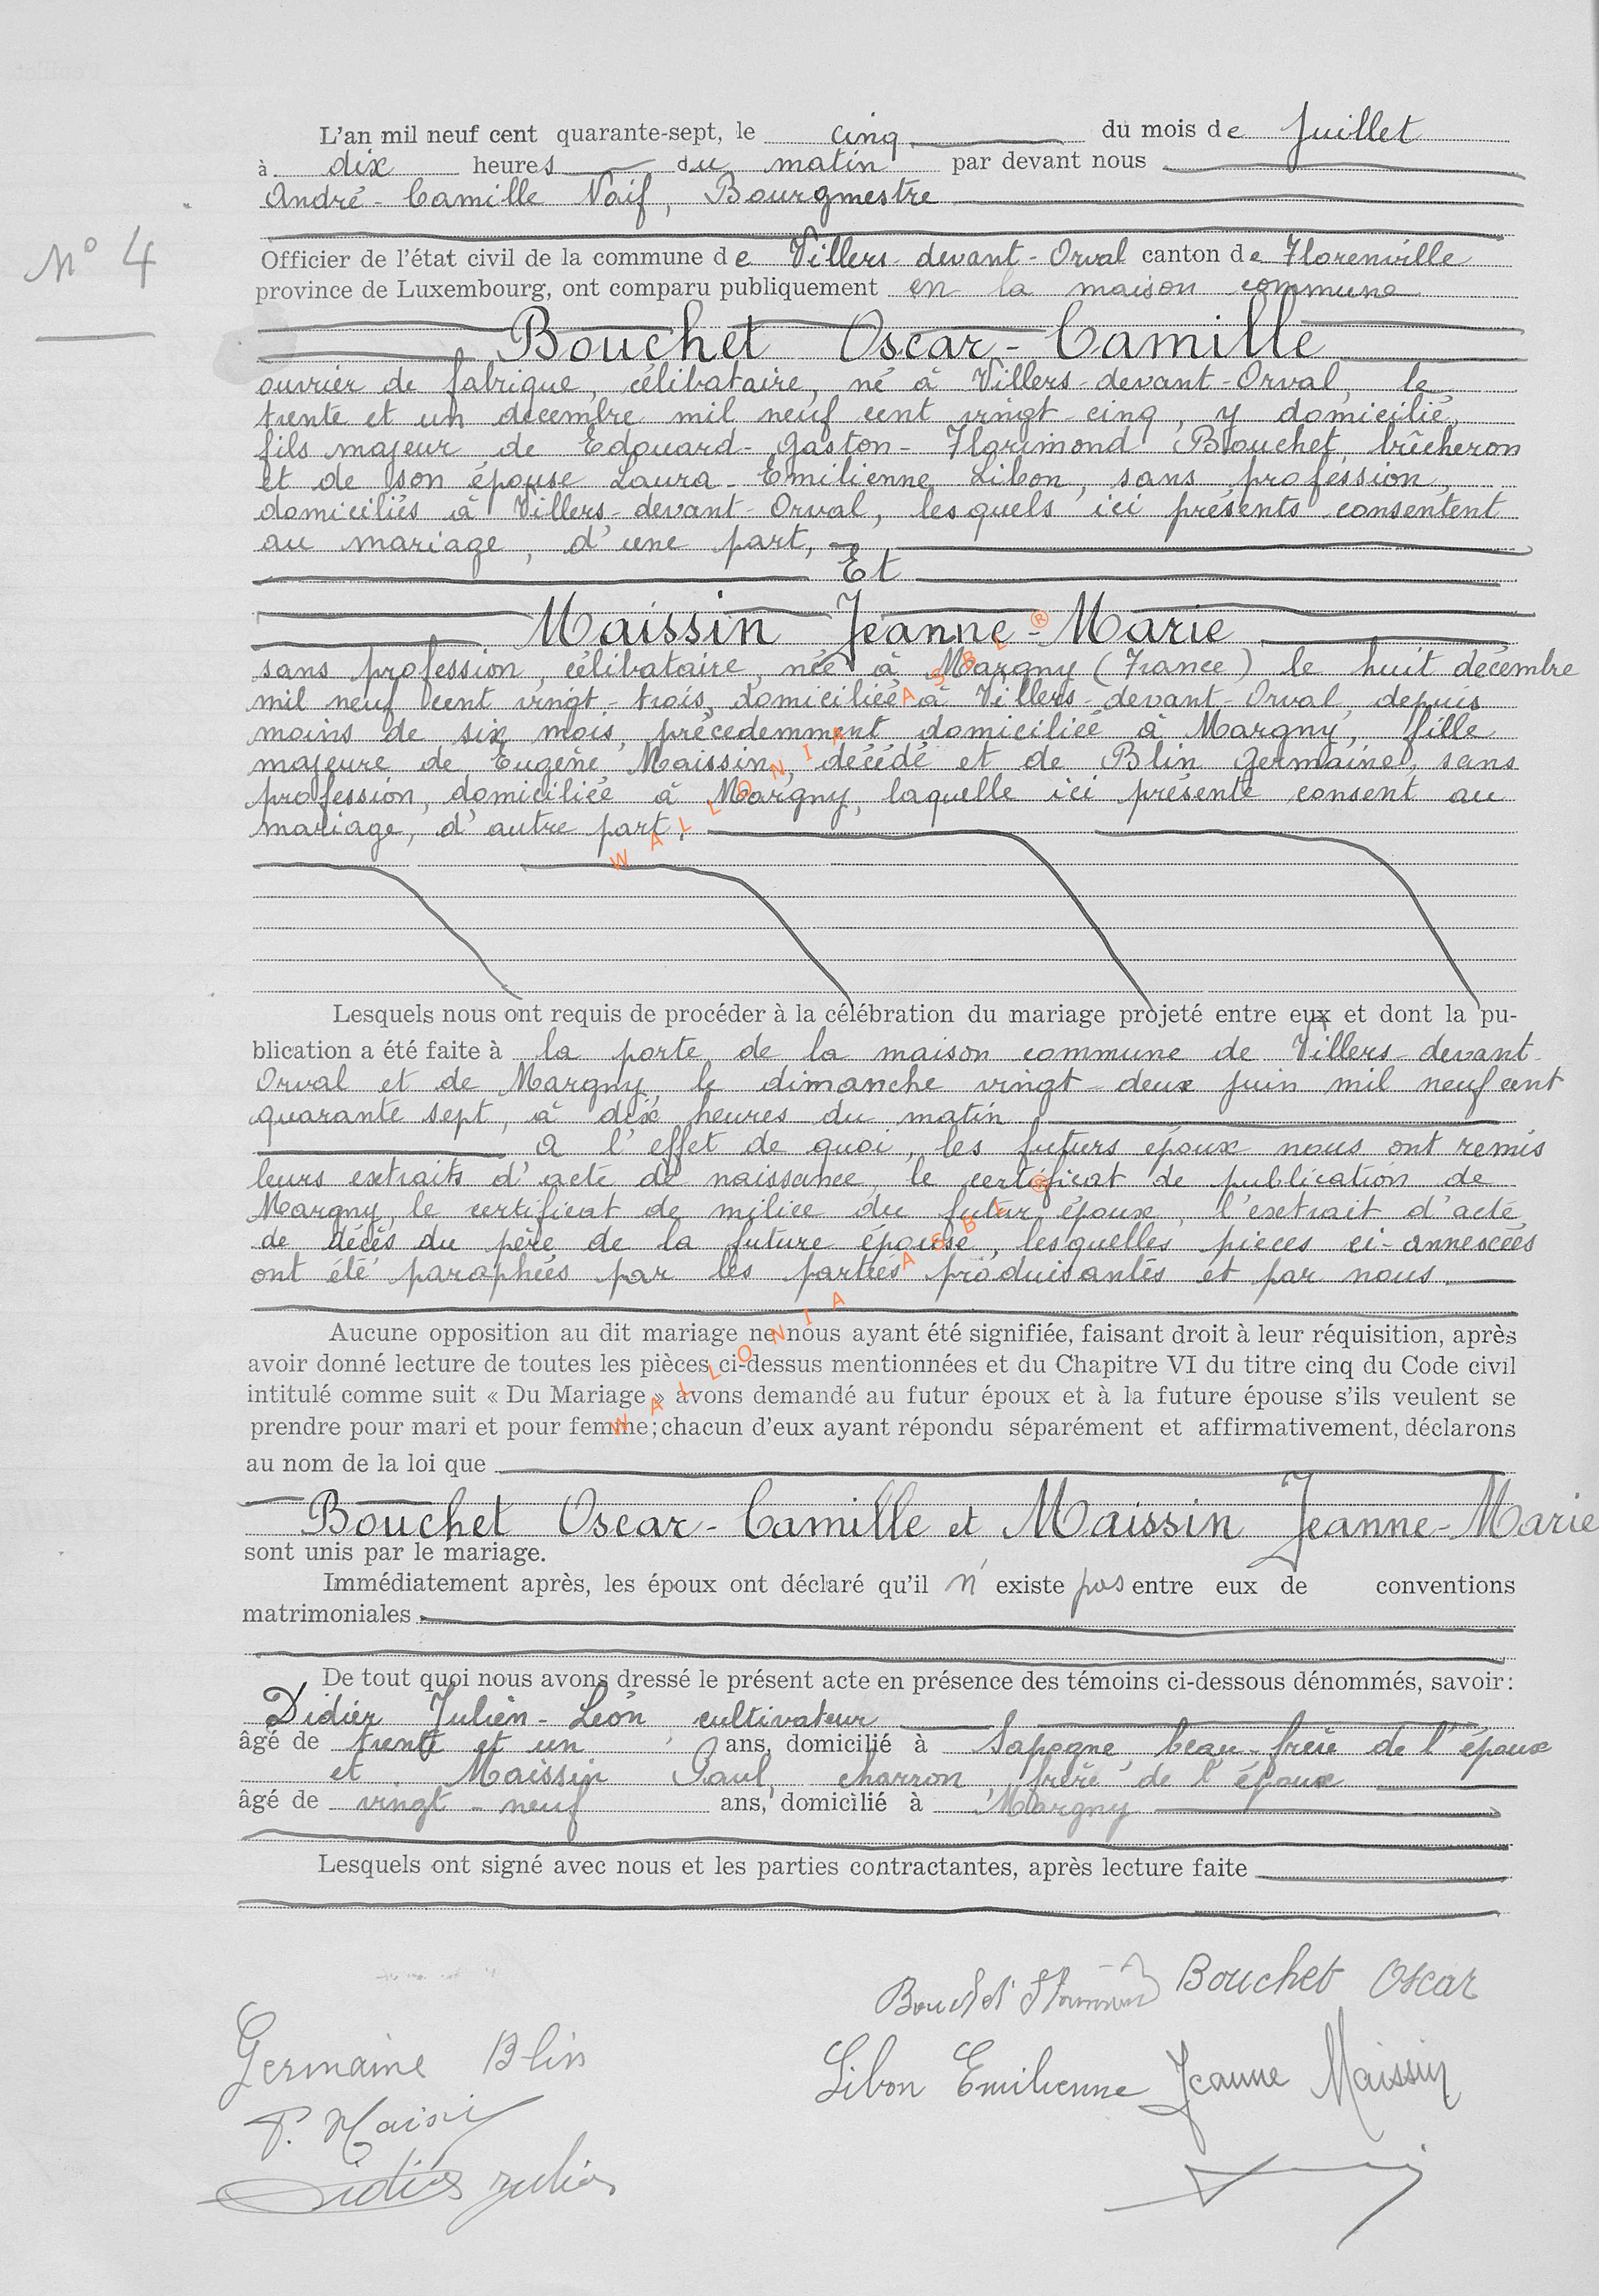 L'an mil neuf cent quarante-sept, le cinq du mois de Juillet
à dix heures du matin par devant nous
André-Camille Naif, Bourgmestre
N° 4
Officier de l'état civil de la commune de Villers-devant-Orval canton de Florenville
province de Luxembourg, ont comparu publiquement en la maison commune
Bouchet Oscar-Camille
ouvrier de fabrique, célibataire, né à Villers-devant-Orval, le
trente et un decembre mil neuf cent vingt-cinq, y domicilié,
fils majeur de Edouard-Gaston-Florimond Bouchet, bûcheron
et de son épouse Laura-Emilienne Libon, sans profession,
domiciliés à Villers-devant-Orval, lesquels ici présents consentent
au mariage, d'une part,
Et
Maissin Jeanne-Marie
sans profession, célibataire, née à Margny (France) le huit décembre
mil neuf cent vingt-trois, domiciliée à Villers-devant-Orval, depuis
moins de six mois, précédemment domiciliée à Margny, fille
majeure de Eugène Maissin, décédé et de Blin Germaine, sans
profession, domiciliée à Margny, laquelle ici présente consent au
mariage, d'autre part.
WALLONIA ASBL ®
Lesquels nous ont requis de procéder à la célébration du mariage projeté entre eux et dont la pu-
blication a été faite à la porte de la maison commune de Villers-devant-
Orval et de Margny, le dimanche vingt-deux juin mil neuf cent
quarante sept, à dix heures du matin
A l'effet de quoi, les futurs époux nous ont remis
leurs extraits d'acte de naissance, le certificat de publication de
Margny, le certificat de milice du futur époux, l'extrait d'acte
de décès du père de la future épouse, lesquelles pièces ci-annexées
ont été paraphées par les parties produisantes et par nous.
WALLONIA ASBL ®
Aucune opposition au dit mariage ne nous ayant été signifiée, faisant droit à leur réquisition, après
avoir donné lecture de toutes les pièces ci-dessus mentionnées et du Chapitre VI du titre cinq du Code civil
intitulé comme suit « Du Mariage » avons demandé au futur époux et à la future épouse s'ils veulent se
prendre pour mari et pour femme; chacun d'eux ayant répondu séparément et affirmativement, déclarons
au nom de la loi que
Bouchet Oscar-Camille et Maissin Jeanne-Marie
sont unis par le mariage.
Immédiatement après, les époux ont déclaré qu'il n'existe pas entre eux de conventions
matrimoniales
De tout quoi nous avons dressé le présent acte en présence des témoins ci-dessous dénommés, savoir:
Didier Julien-Léon, cultivateur
âgé de trente et un ans, domicilié à Sapogne, beau-frère de l'époux
et Maissin Paul, charron, frère de l'époux
âgé de vingt-neuf ans, domicilié à Margny
Lesquels ont signé avec nous et les parties contractantes, après lecture faite
Bouchet Oscar
Bouchet
Germaine Blin
Libon Emilienne Jeanne Maissin
P. Maissin
Didier Julien